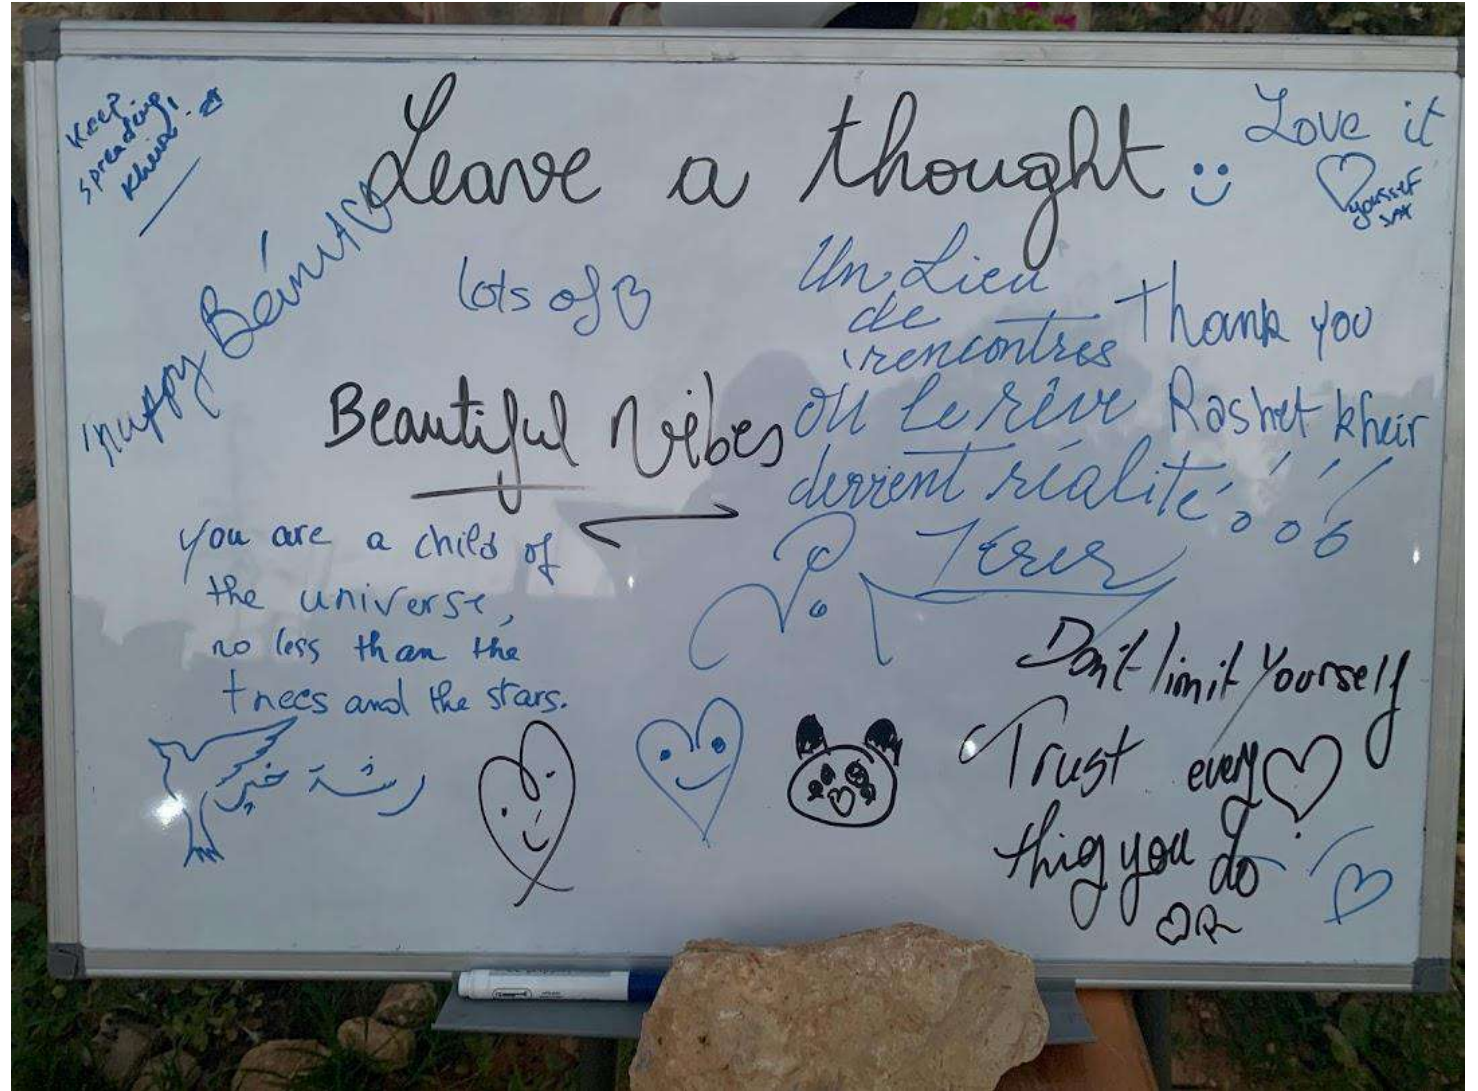 Keep
spreading
Kheir
Leave a thought
Love it
youssef
lots of
Beautiful Vibes
Un Lieu
de
rencontres
où le rêve
devient réalité
Thank you
Rashet kheir
you are a child of
the universe,
no less than the
trees and the stars.
رشة خير
Don't limit yourself
Trust every
thig you do